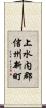 上水内郡信州新町